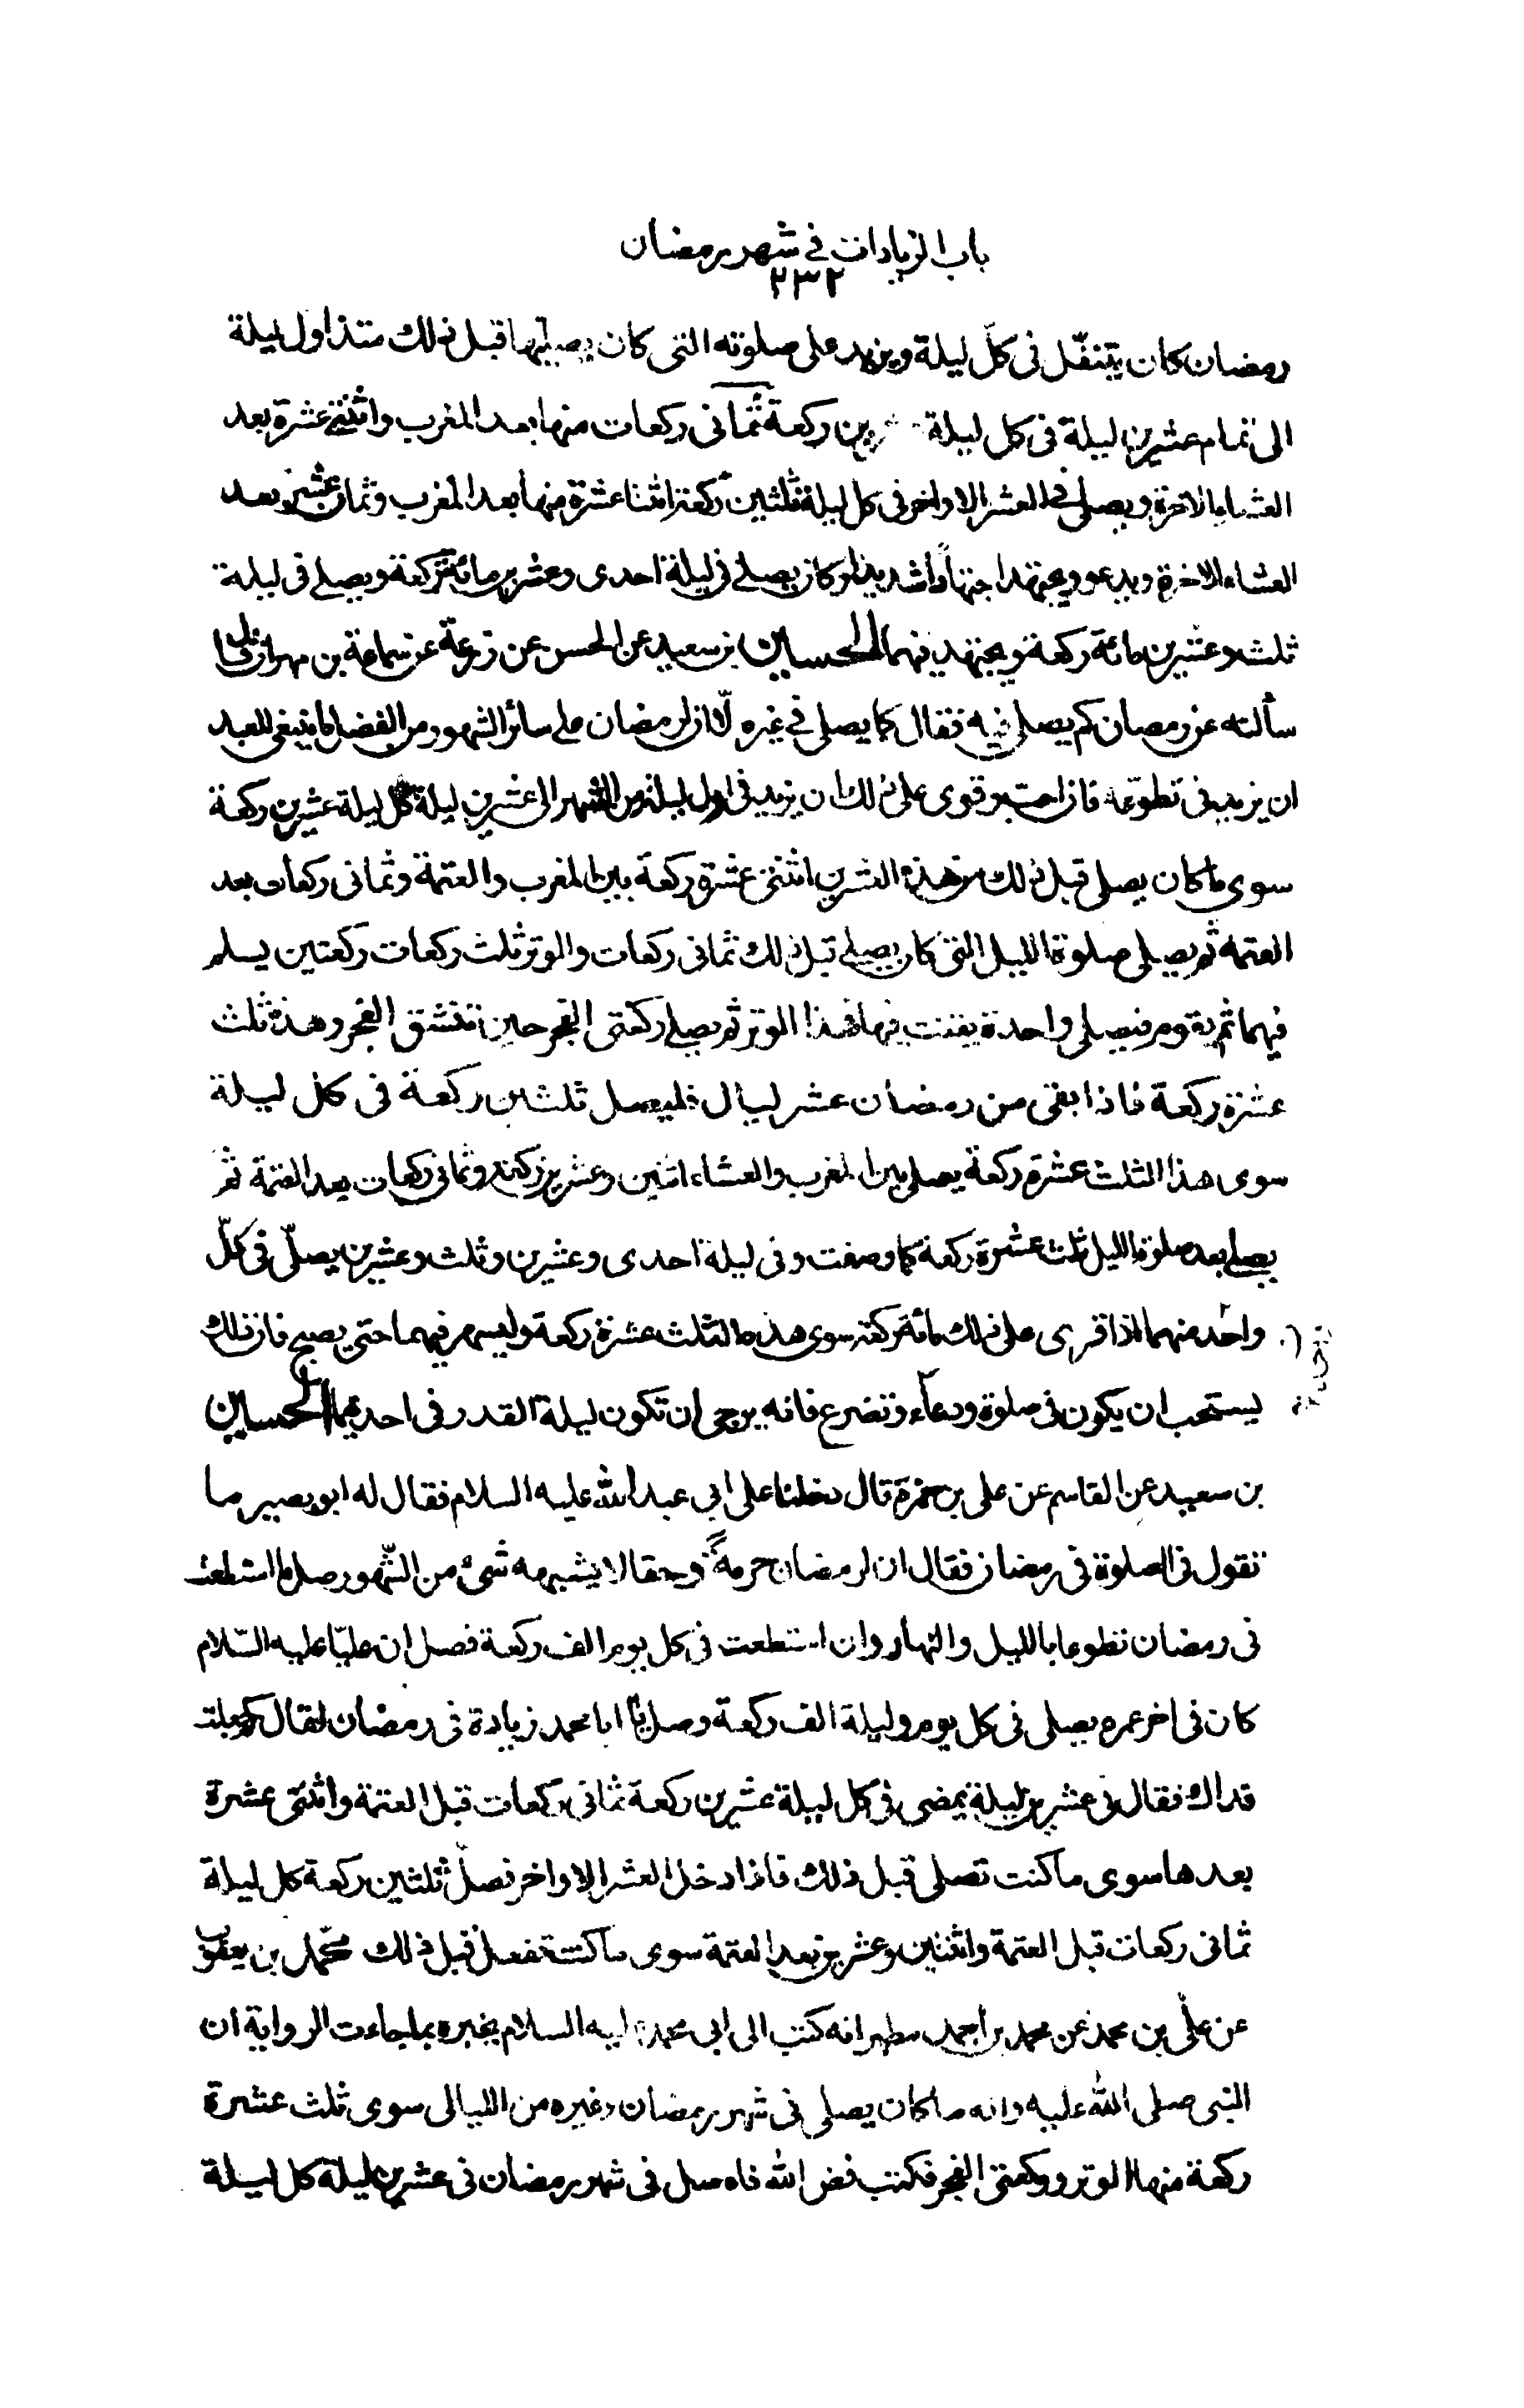 باب الزيادات فى شهر رمضان
٢٣٢
رمضان كان يتنفّل فى كلّ ليلة ويزيد على صلوته التى كان يصليها قبل ذلك منذ اول ليلة
الى تمام عشرين ليلة فى كل ليلة عشرين ركعة ثمانى ركعات منها بعد المغرب واثنتى عشرة بعد
العشاء الاخرة ويصلى فى العشر الاواخر فى كل ليلة ثلثين ركعة اثنتا عشرة منها بعد المغرب وثمان عشرة بعد
العشاء الاخرة ويدعو ويجتهد اجتهاداً شديداً وكان يصلى فى ليلة احدى وعشرين مائة ركعة ويصلى فى ليلة
ثلث وعشرين مائة ركعة ويجتهد فيهما الحسين بن سعيد عن الحسن عن زرعة عن سماعة بن مهران قال
سألته عن رمضان كم يصلى فيه فقال كما يصلى فى غيره الّا ان لرمضان على سائر الشهور من الفضل ما ينبغى للعبد
ان يزيد فى تطوّعه فان احب وقوى على ذلك ان يزيد فى اول ليلة من الشهر الى عشرين ليلة كل ليلة عشرين ركعة
سوى ما كان يصلى قبل ذلك من هذه العشرين اثنتى عشرة ركعة بين المغرب والعتمة وثمانى ركعات بعد
العتمة ثم يصلى صلوة الليل التى كان يصلى قبل ذلك ثمانى ركعات والوتر ثلث ركعات ركعتين يسلم
فيهما ثم يقوم فيصلى واحدة يقنت فيها فهذا الوتر ثم يصلى ركعتى الفجر حين ينشق الفجر وهذه ثلث
عشرة ركعة فاذا بقى من رمضان عشر ليال فليصل ثلثين ركعة فى كل ليلة
سوى هذا الثلث عشرة ركعة يصلى بين المغرب والعشاء اثنين وعشرين ركعة وثمانى ركعات بعد العتمة ثم
يصلى بعد صلوة الليل ثلث عشرة ركعة كما وصفت وفى ليلة احدى وعشرين وثلث وعشرين يصلّى فى كلّ
واحد منهما اذا قوى على ذلك مائة ركعة سوى هذه الثلث عشرة ركعة وليسهر فيهما حتى يصبح فان ذلك
يستحب ان يكون فى صلوة ودعاء وتضرع فانه يرجى ان تكون ليلة القدر فى احديهما الحسين
بن سعيد عن القاسم عن على بن حمزة قال دخلنا على ابى عبد الله عليه السلام فقال له ابو بصير ما
تقول فى الصلوة فى رمضان فقال ان لرمضان حرمة وحقا لا يشبهه شئ من الشّهور صل ما استطعت
فى رمضان تطوعا بالليل والنهار وان استطعت فى كل يوم الف ركعة فصل ان عليّا عليه السّلام
كان فى اخر عمره يصلى فى كل يوم وليلة الف ركعة وصل يا ابا محمد زيادة فى رمضان فقال كم جعلت
فداك فقال فى عشرين ليلة يمضى فى كل ليلة عشرين ركعة ثمانى ركعات قبل العتمة واثنتى عشرة
بعدها سوى ما كنت تصلى قبل ذلك فاذا دخل العشر الاواخر فصلّ ثلثين ركعة كل ليلة
ثمانى ركعات قبل العتمة واثنين وعشرين بعد العتمة سوى ما كنت تفعل قبل ذلك محمد بن يعقوب
عن علّى بن محمد عن محمد بن احمد مطهر انه كتب الى ابى محمد عليه السلام يخبره بما جاءت الرواية ان
النبى صلى الله عليه واله ما كان يصلى فى شهر رمضان وغيره من الليالى سوى ثلث عشرة
ركعة منها الوتر وركعتى الفجر فكتب فض الله فاه صل فى شهر رمضان فى عشرين ليلة كل ليلة